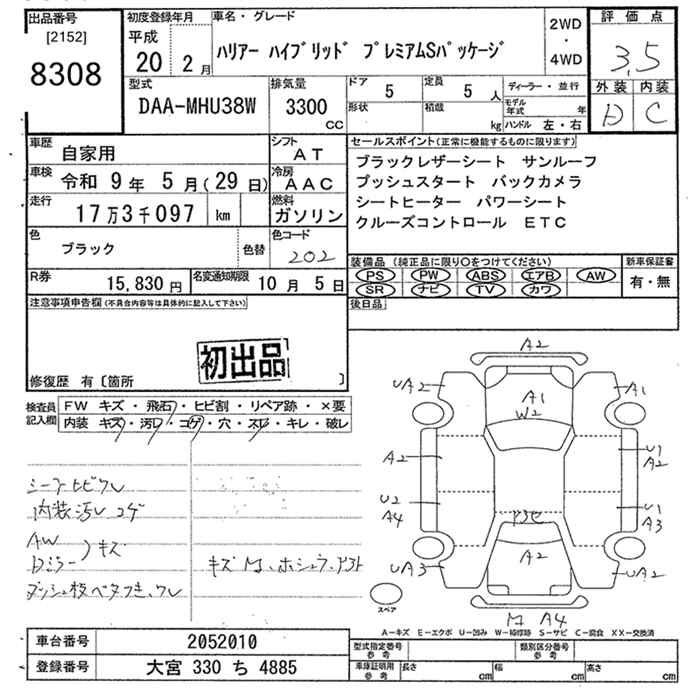 出品番号
[2152]
8308
初度登録年月
平成
20 2月
車名・グレード
ハリアー ハイブリッド プレミアムSパッケージ
2WD
・
4WD
評価点
3.5
外装 内装
D C
型式
DAA-MHU38W
排気量
3300
CC
ドア
5
形状
定員
5 人
積載
kg
ディーラー・並行
モデル年式 年
ハンドル 左・右
車歴
自家用
シフト
AT
車検
令和 9年 5月(29日)
冷房
AAC
走行
17万3千097 km
燃料
ガソリン
色
ブラック
色替
色コード
202
R券
15,830円
名変通知期限
10月 5日
セールスポイント(正常に機能するものに限ります)
ブラックレザーシート サンルーフ
プッシュスタート バックカメラ
シートヒーター パワーシート
クルーズコントロール ETC
装備品 (純正品に限り○をつけてください)
PS PW ABS エアB AW
SR ナビ TV カワ
新車保証書
有・無
後日品
注意事項申告欄(不具合内容等は具体的に記入して下さい)
初出品
修復歴 有〔箇所 〕
検査員記入欄
FW キズ・飛石・ヒビ割・リペア跡・×要
内装 キズ・汚レ・コゲ・穴・スレ・キレ・破レ
シートヒビワレ
内装汚レ コゲ
AW
Dミラー
キズ
ダッシュ板ベタつき、ワレ
A2
UA2
A1
A1
W2
A2
U1
A2
U2
A4
U1
A3
A2
UA3
UA2
A4
スペア
A-キズ E-エクボ U-凹み W-補修跡 S-サビ C-腐食 XX-交換済
車台番号
2052010
登録番号
大宮 330 ち 4885
型式指定番号
参考
類別区分番号
参考
車庫証明用
参考
長さ cm
幅 cm
高さ cm